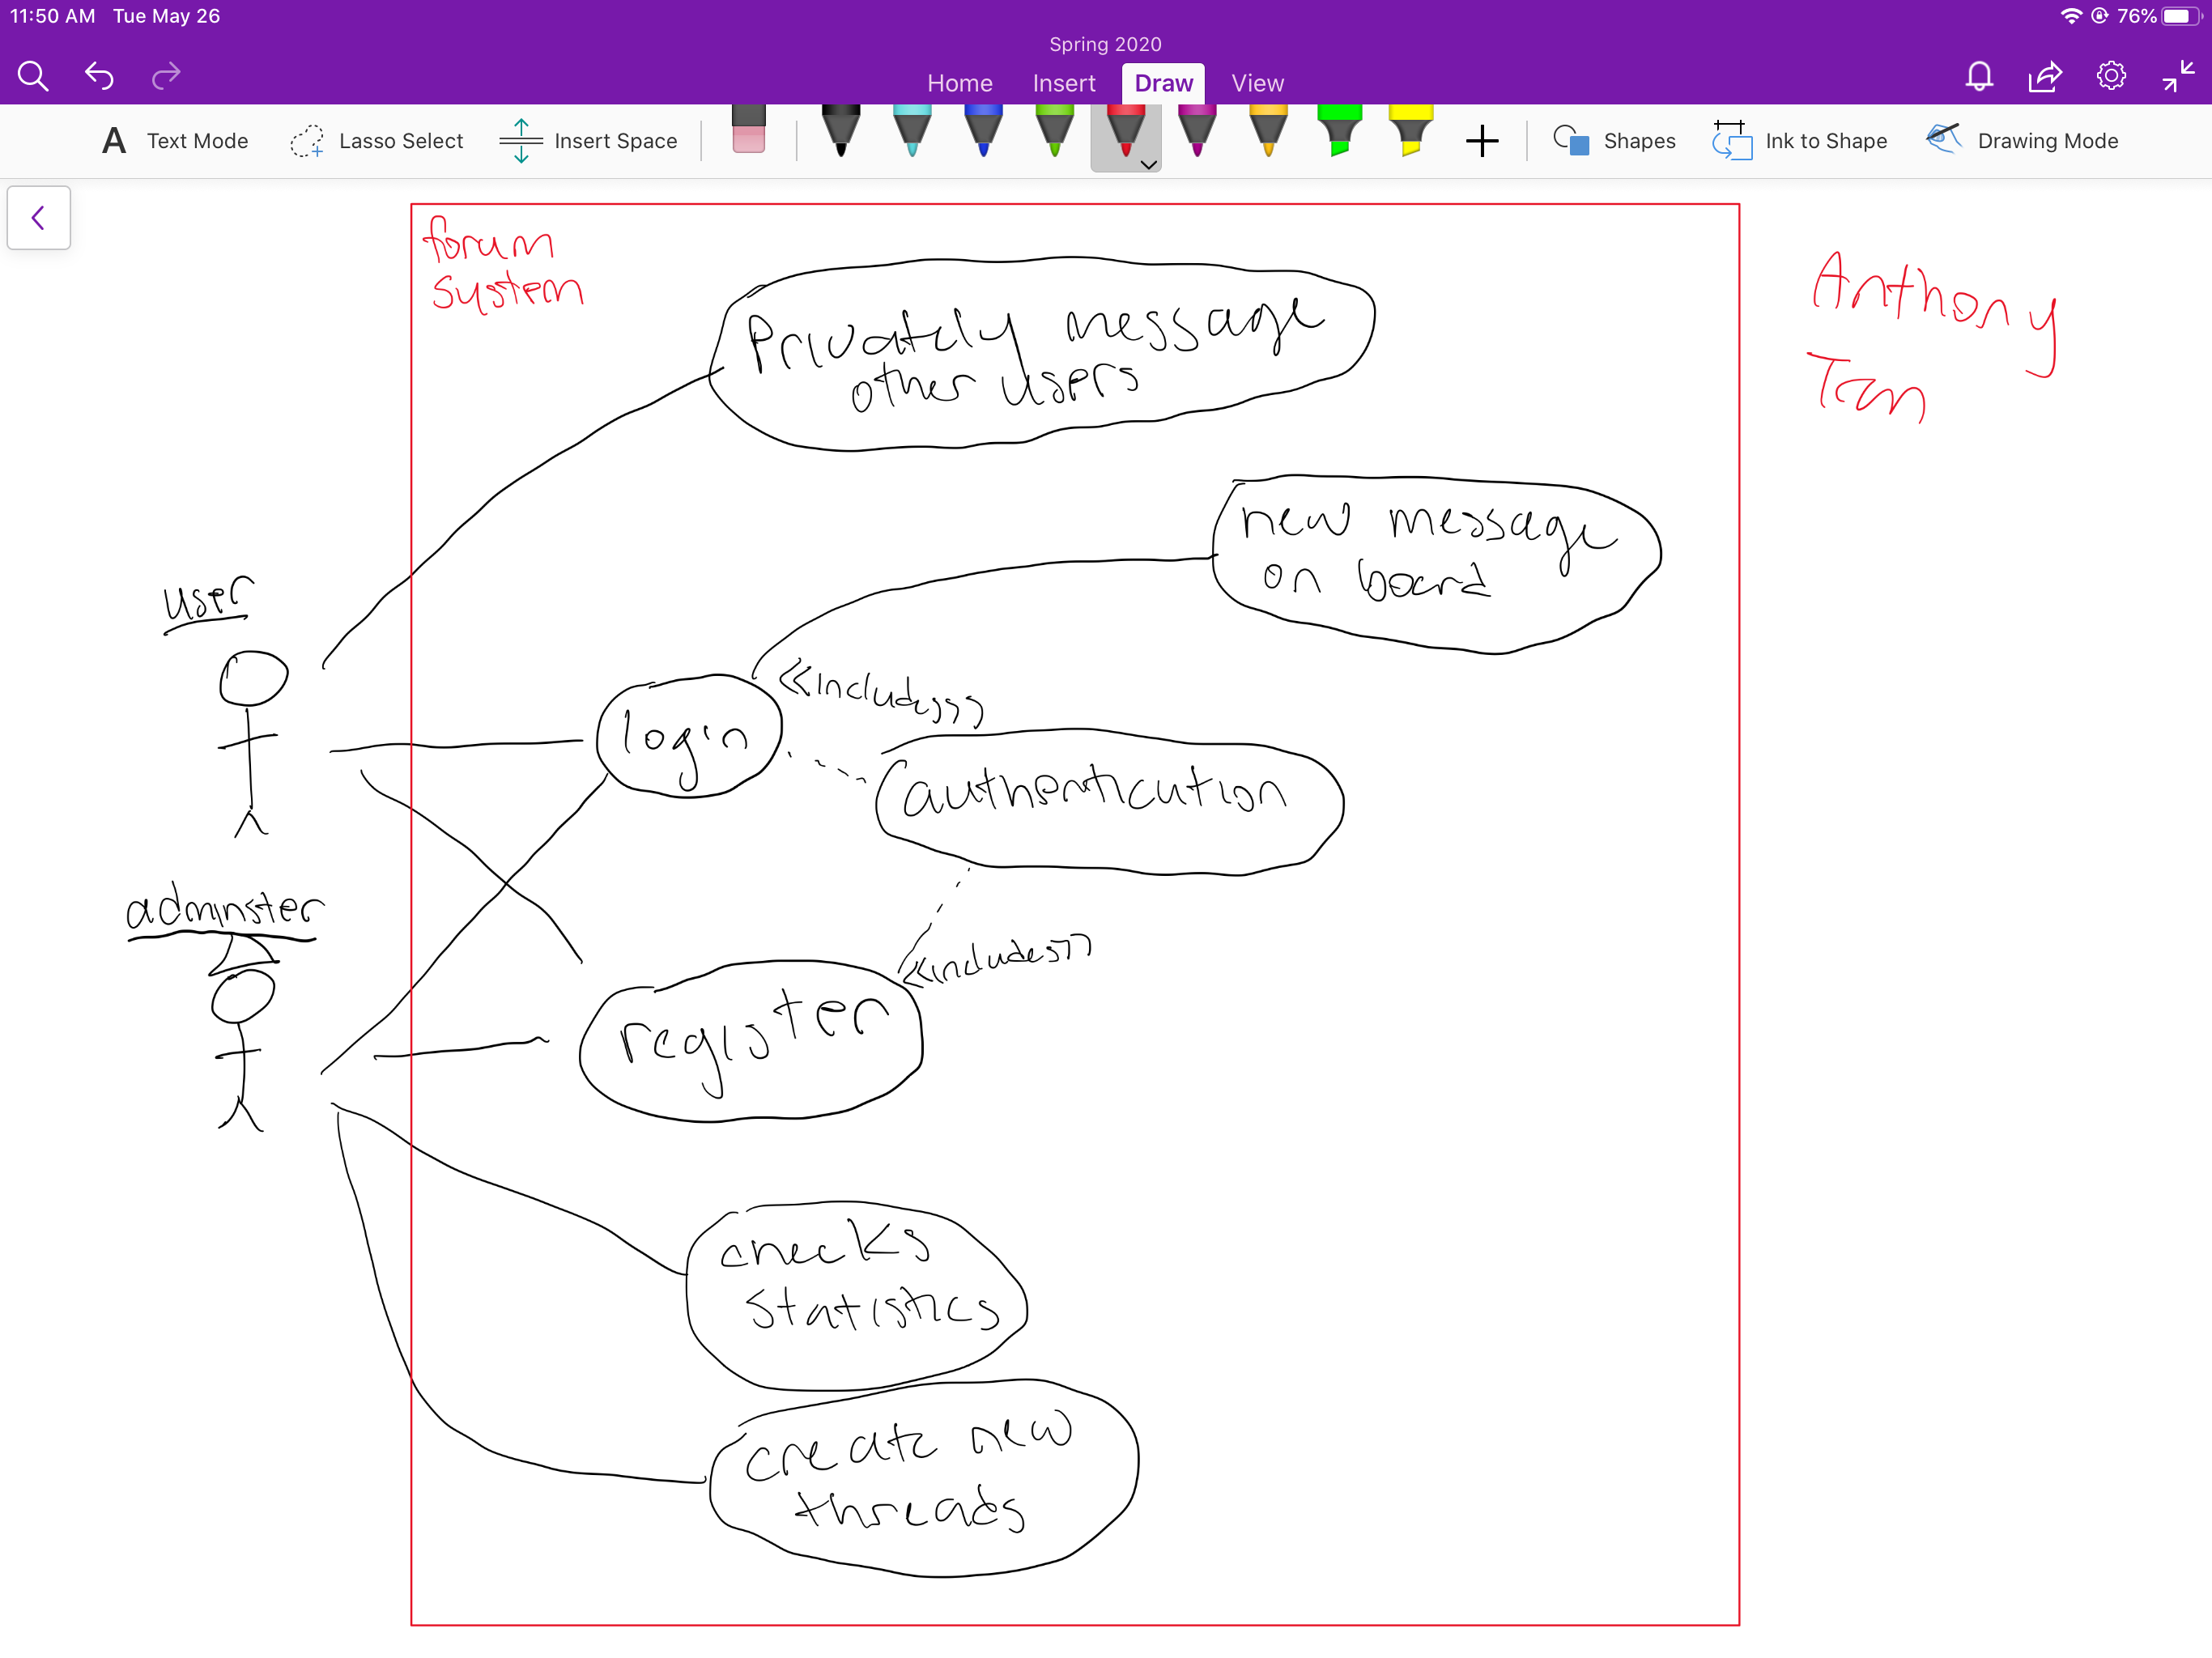 11:50 AM Tue May 26
76%
Spring 2020
Home Insert Draw View
A Text Mode Lasso Select Insert Space Shapes Ink to Shape Drawing Mode
forum
system
Anthony
Tran
Privately message
other users
new message
on board
user
<<includes>>
login
authentication
adminster
<<includes>>
register
checks
statistics
create new
threads